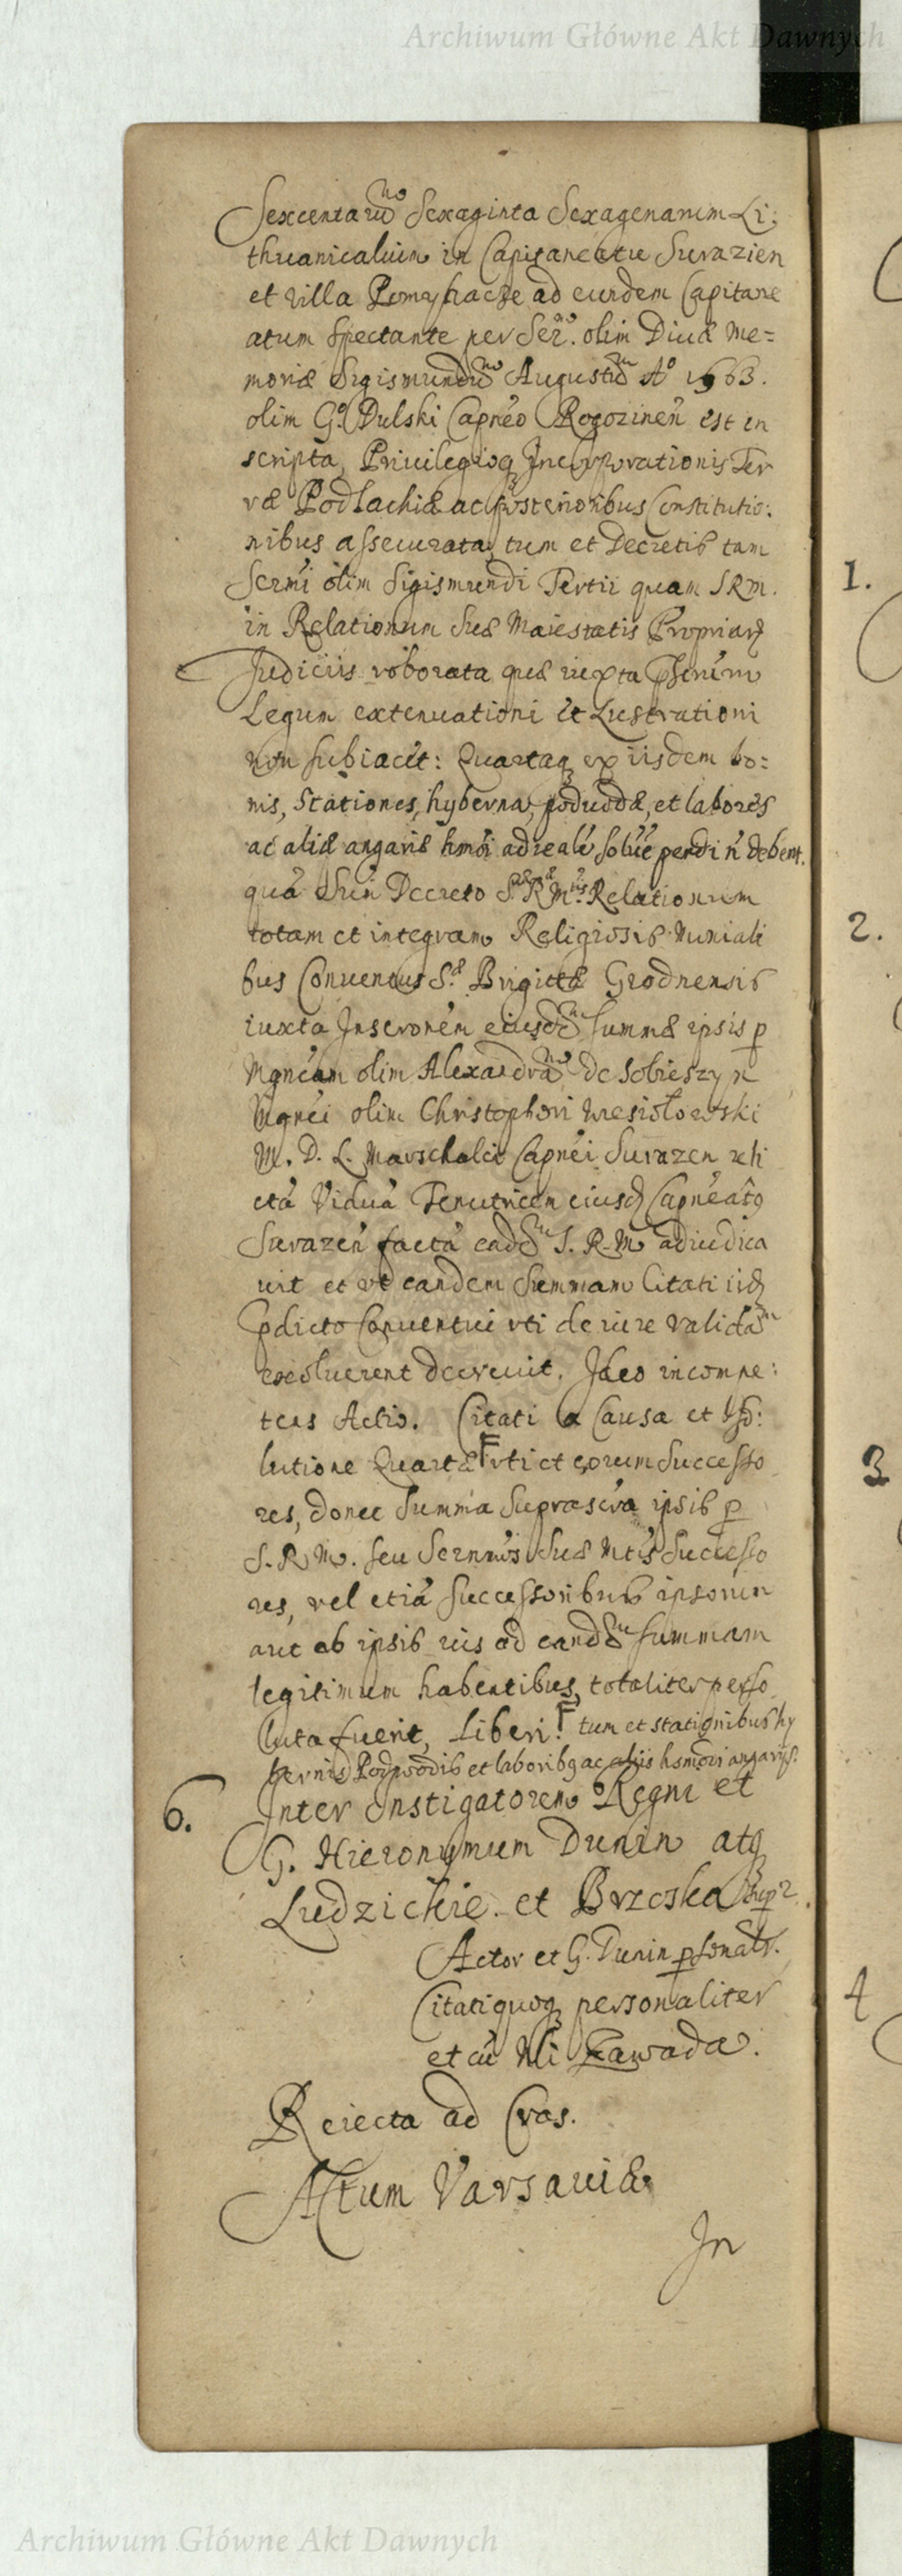 Archiwum Główne Akt Dawnych
Sexcentarũ Sexaginta Sexagenarum Li:
thuanicalium in Capitaneatu Surazien
et villa Pomyhacze ad eundem Capitane
atum spectante per Ser. olim Divæ Me=
moriæ Sigismundũ Augustũ Aº 1563.
olim G. Dulski Capneo Rogozineń est in
scripta, Privilegioq Incorporationis Ter
ræ Podlachiæ ac posterioribus Constitutio:
nibus assecurata, tum et Decretis tam
Sermi olim Sigismundi Tertii quam SRM.
in Relationum Suæ Maiestatis Propriarũ
Judiciis roborata quæ iuxta
Legum extenuationi et Lustrationi
non subiacet: Quartaq ex iisdem bo:
nis, Stationes, hyberna, podvodæ, et labores
ac aliæ angariæ hmoi ad debent.
quá Decreto S. R. M. Relationum
totam et integram Religiosis Moniali
bus Conventus S. Brigittæ Grodnensis
iuxta Inscronem eiusdẽ summæ ipsis p
Mgneam olim Alexandrã de Sobieszyn
Mgnei olim Christophori Wiesiołowski
M. D. L. Marschalci Capnei Surazen reli
ctá Viduá Tenutricem eiusd Capneatq
Surazeń factá eadẽ S. R. M. adiudica
vit et vt eandem Summam Citati iid
pdicto Conventui vti de iure valida
exoluerent decrevit. Ideo incompe:
tens Actio. Citati a Causa et
lutione Quartæ F vti et eorum Successo
res, donec Summa suprascra ipsis p
S. R. M. seu Sernmos Suæ Mtis Successo
res, vel etiá successoribus ipsorum
aut ab ipsis ius ad eandẽ summam
legitimum habentibus, totaliter perso
luta fuerit, Liberi. F tum et stationibus hy
bernis Podvodis et laboribq ac aliis hmoi angariis.
6. Inter Instigatorem Regni et
G. Hieronymum Dunin atq
Ludzickie. et Brzoska
Actor et G. Dunin psonalr.
Citati quoq personaliter
et cũ Mli Zawada.
Reiecta ad Cras.
Actum Varsaviæ
In
1.
2.
3
4
Archiwum Główne Akt Dawnych